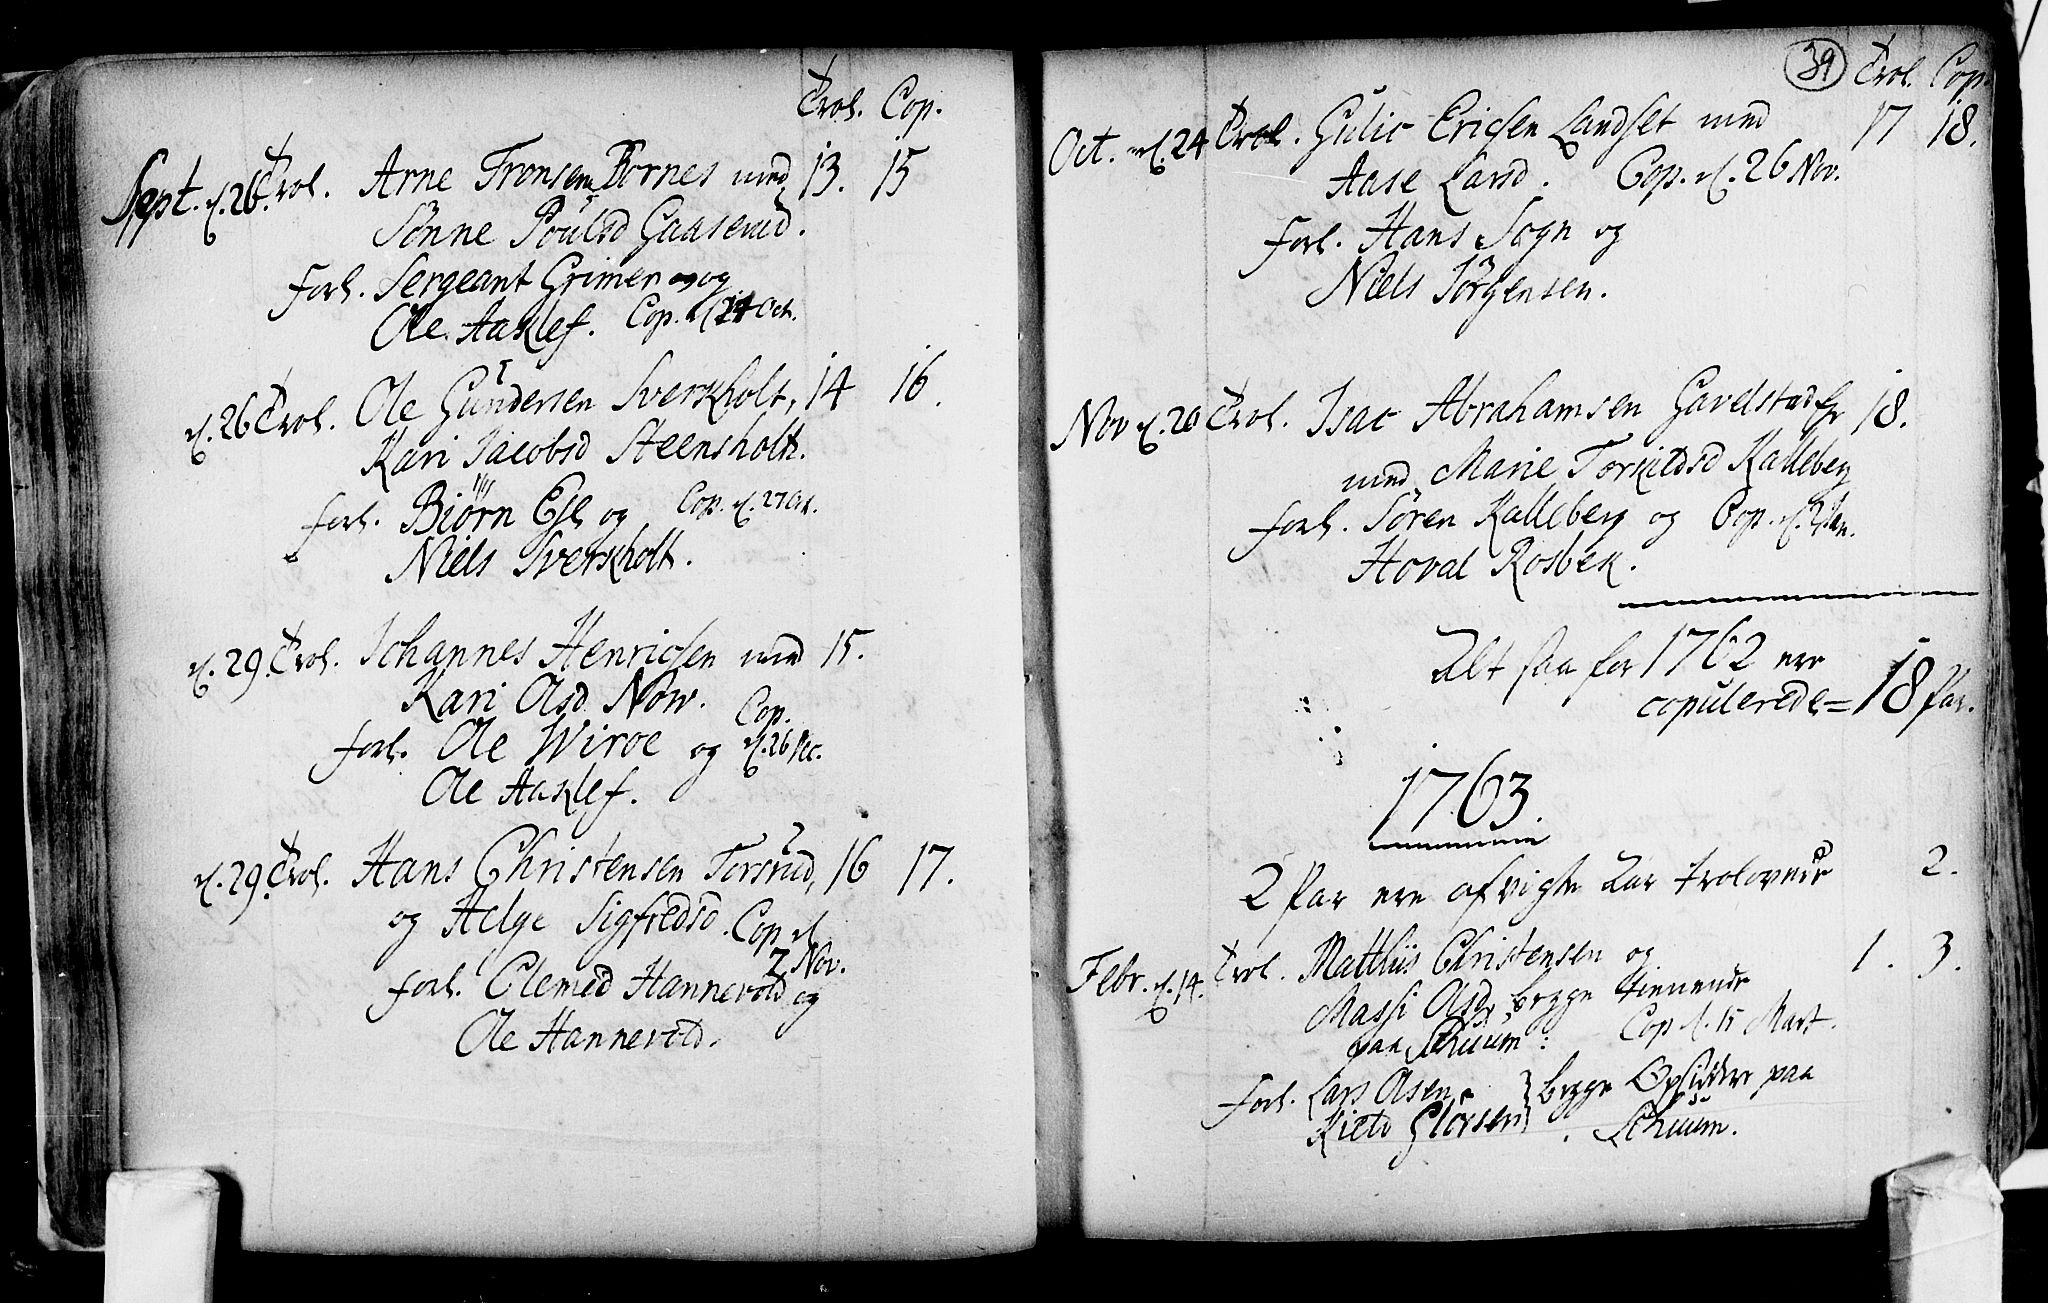 Trol. Cop.
Sept. d. 26. Trol. Arne Tronsen Bornes med 13. 15
Sönne Poulsd Gaaserud.
Forl. Sergeant Grimer og
Ole Aaslef. Cop. d. 14 Oct.
d. 26 Trol. Ole Gundersen Sverkholt, 14 16.
Kari Jacobsd Steensholt.
forl. Biørn Esl og Cop. d. 27 Oct.
Niels Sverkholt.
d. 29. Trol. Johannes Henrichsen med 15.
Kari Olsd Now. Cop.
forl. Ole Wiroe og d. 26 Dec.
Ole Aaslef.
d. 29. Trol. Hans Christensen Torsrud, 16 17.
og Helge Sigfredsd. Cop d.
2 Nov.
forl. Clemed Hannevold og
Ole Hannevold.
39 Trol. Cop.
Oct. d. 24 Trol. Gulic Ericsen Landset med 17 18.
Aase Larsd. Cop. d. 26 Nov.
forl. Hans Sogn og
Niels Jörgensen.
Nov d. 20 Trol. Isac Abrahamsen Gavelstad 18.
med Marie Torkildsd Kalleberg
forl. Sören Kalleberg og Cop. d.
Hoval Rosbek.
Alt saa for 1762 ere
copulerede = 18 Par.
1763.
2 Par ere afvigte Aar trolovede 2.
Febr. d. 14. Trol. Matthiis Christensen og 1. 3.
Massi Olsd, begge tienende
paa Schuum: Cop d. 15 Mart.
Forl. Lars Olsen } begge Opsiddere paa
Kield Glörsen } Schuum.